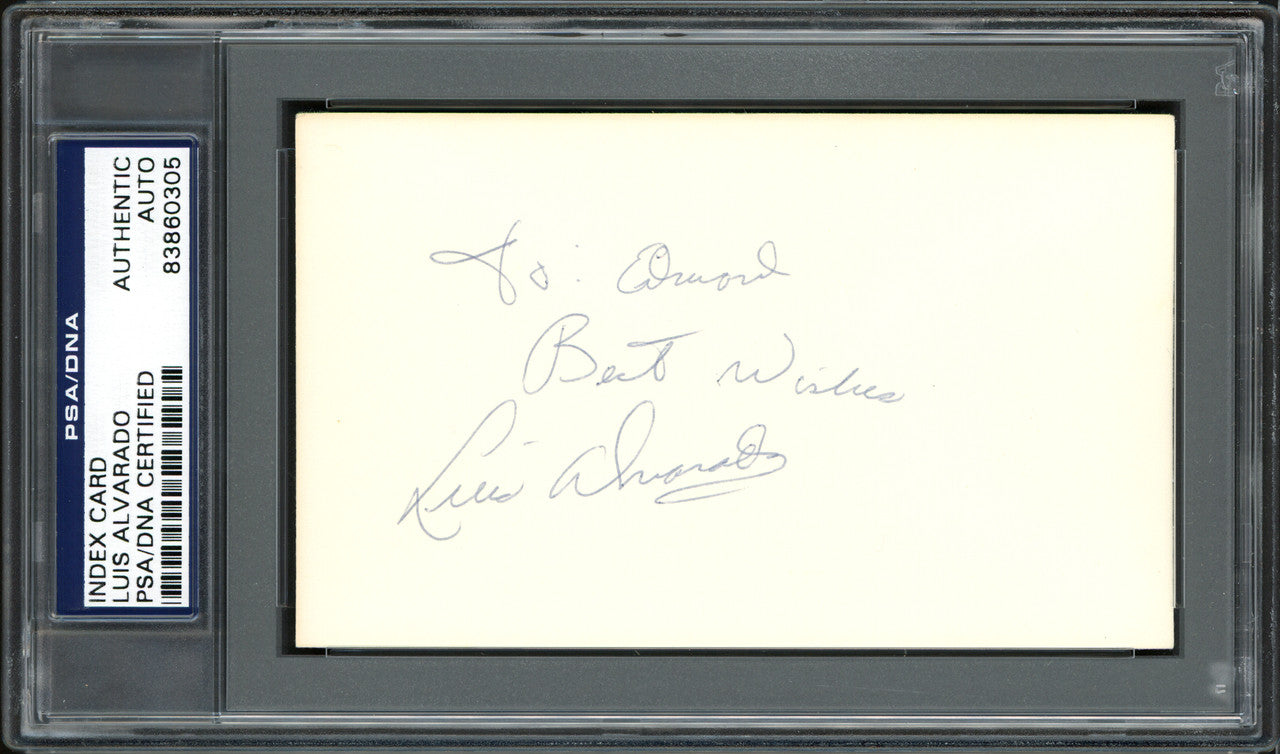 PSA/DNA
INDEX CARD
AUTHENTIC
LUIS ALVARADO
AUTO
PSA/DNA CERTIFIED
83860305
To: Edward
Best Wishes
Luis Alvarado